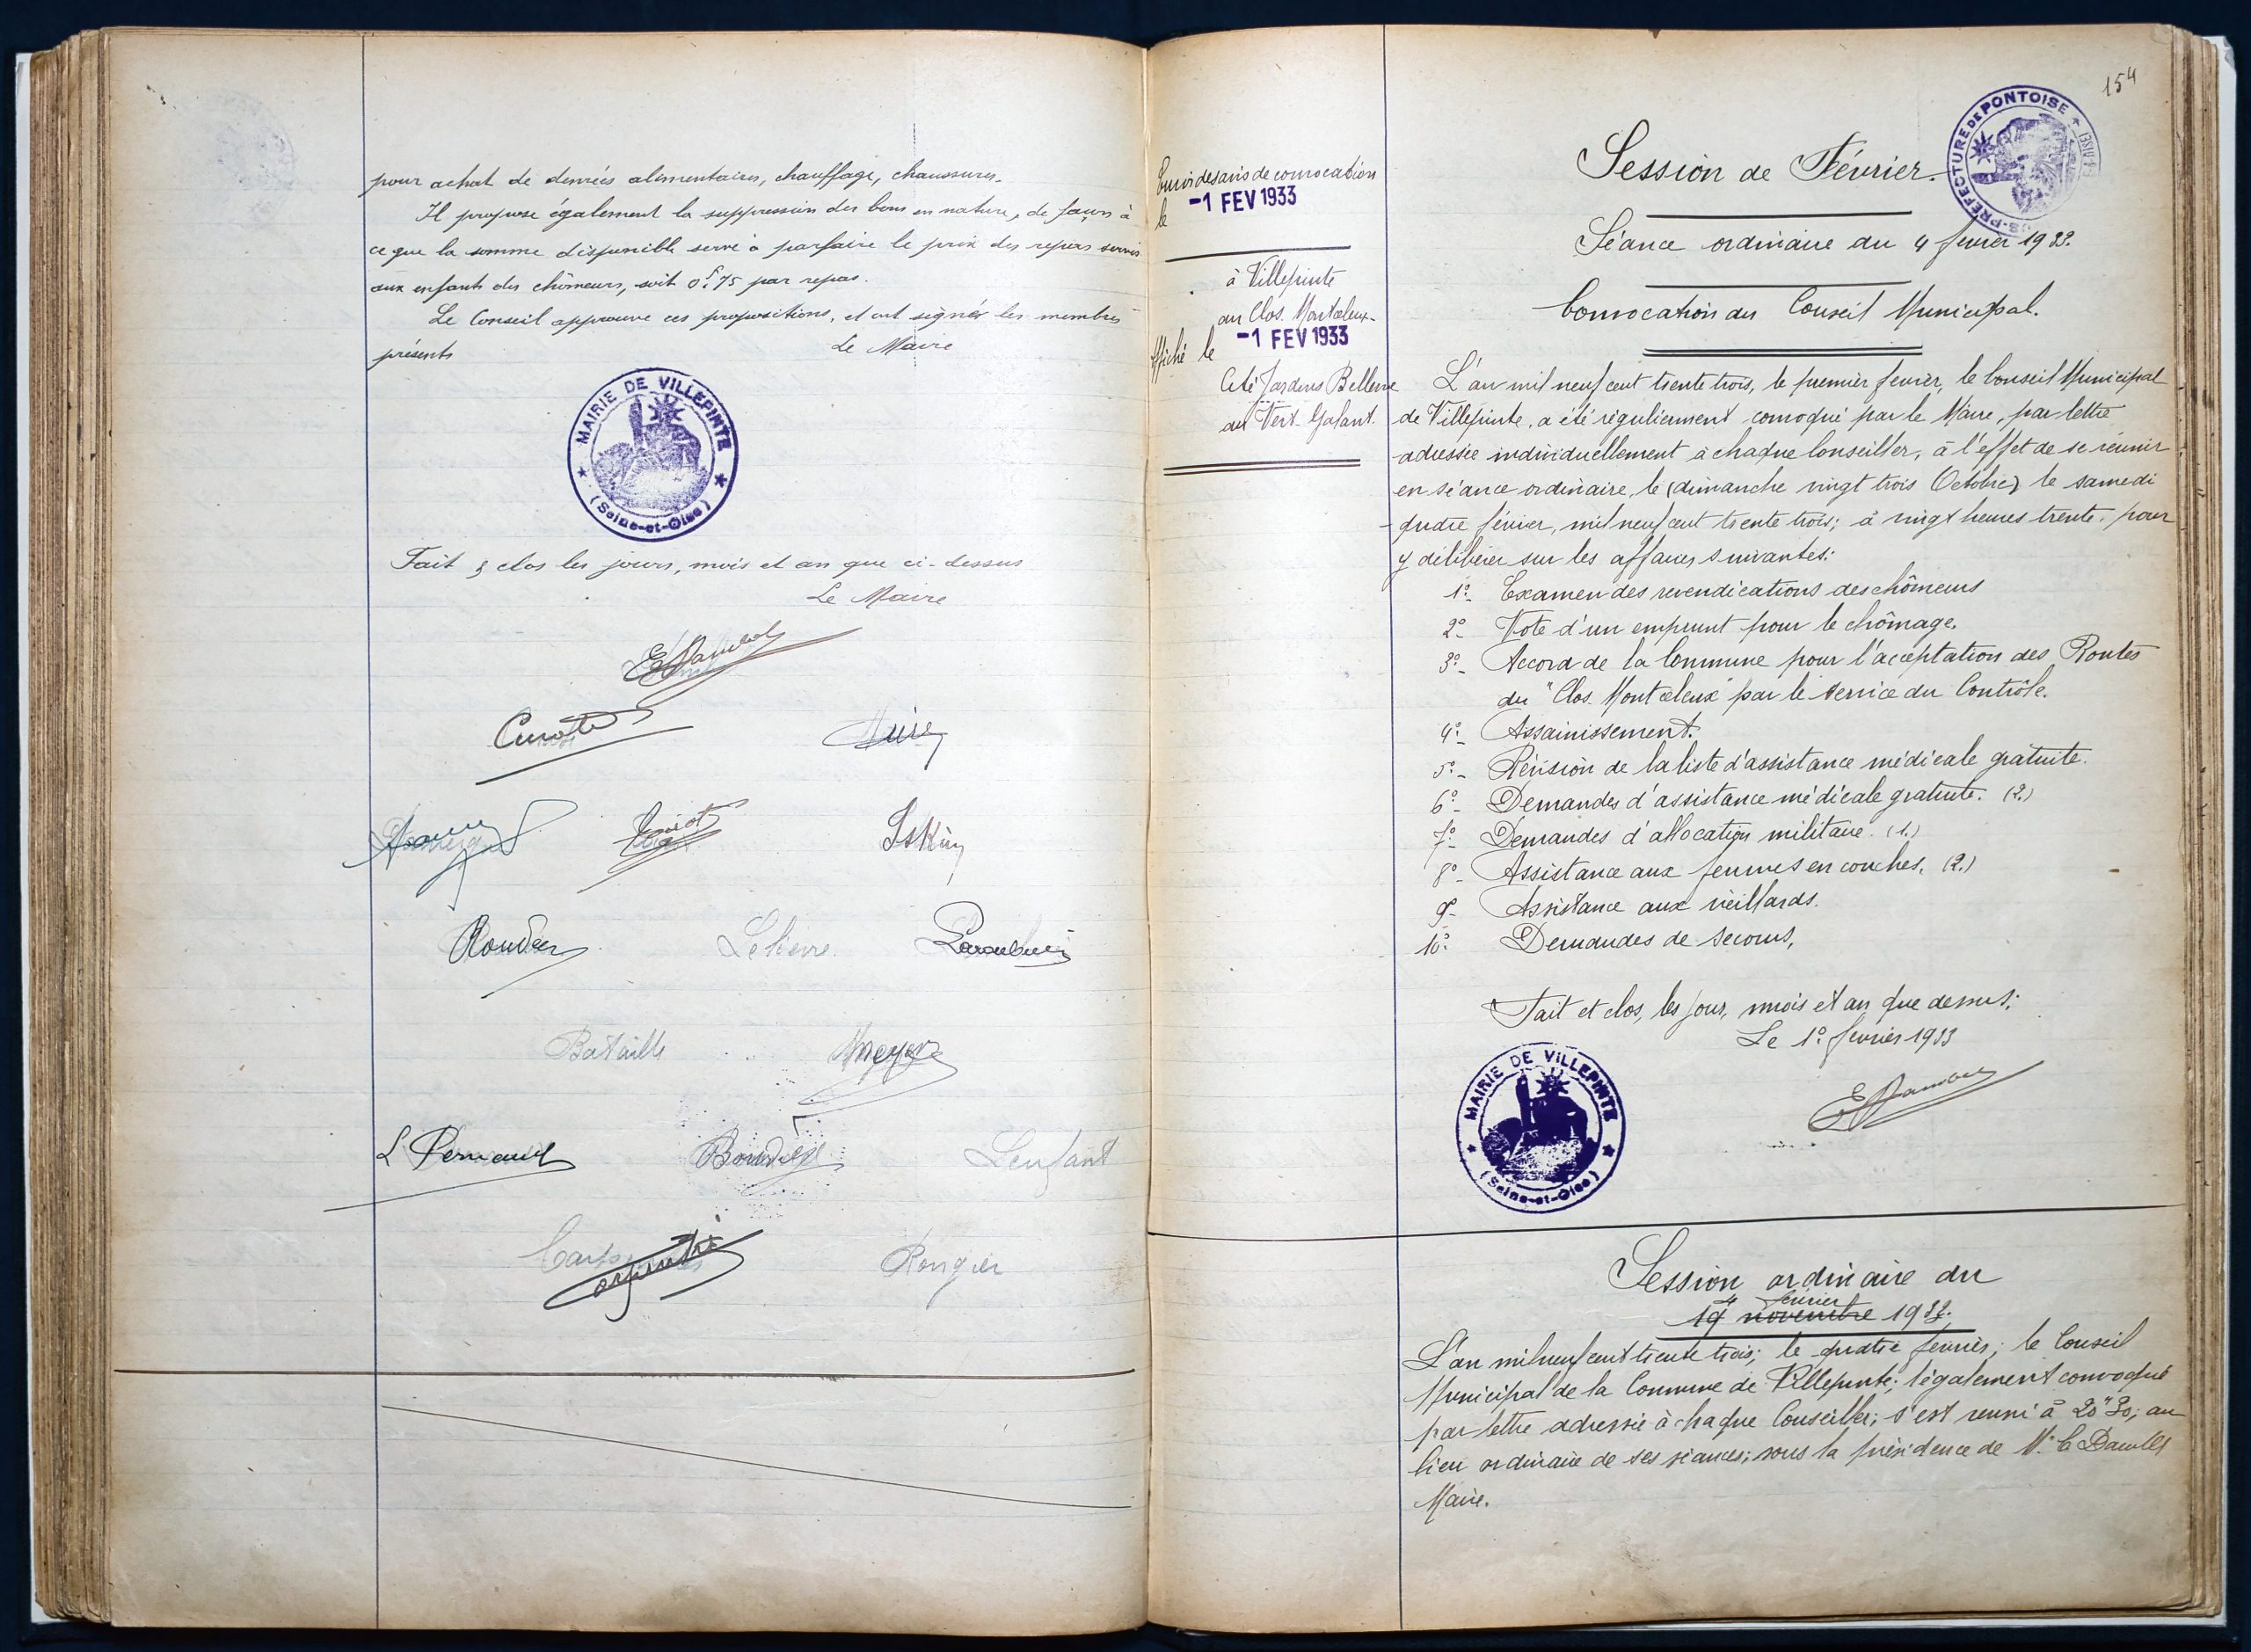 pour achat de denrées alimentaires, chauffage, chaussures.
Il propose également la suppression des bons en nature, de façon à
ce que la somme disponible serve à parfaire le prix des repas servis
aux enfants des chômeurs, soit 0f75 par repas.
Le Conseil approuve ces propositions, et ont signés les membres
présents
Le Maire
MAIRIE DE VILLEPINTE
(Seine-et-Oise)
Fait & clos les jours, mois et an que ci-dessus
Le Maire
Roudier
Lelievre
Bataille
Meyer
Lenfant
Rongier
154
SOUS-PREFECTURE DE PONTOISE
Envoi des avis de convocation
le
-1 FEV 1933
à Villepinte
au Clos Montceleux
Affiché le
-1 FEV 1933
Cité Jardins Bellevue
au Vert-Galant.
Session de Février.
Séance ordinaire du 4 février 1933.
Convocation du Conseil Municipal.
L'an mil neuf cent trente trois, le premier février, le Conseil Municipal
de Villepinte, a été régulièrement convoqué par le Maire, par lettre
adressée individuellement à chaque Conseiller, à l'effet de se réunir
en séance ordinaire, le (dimanche vingt trois Octobre) le samedi
quatre février, mil neuf cent trente trois; à vingt heures trente, pour
y délibérer sur les affaires suivantes:
1°- Examen des revendications des chômeurs
2°- Vote d'un emprunt pour le chômage.
3°- Accord de la Commune pour l'acceptation des Routes
du "Clos Montceleux" par le service du Contrôle.
4°- Assainissement.
5°- Révision de la liste d'assistance médicale gratuite.
6°- Demandes d'assistance médicale gratuite. (2.)
7°- Demandes d'allocation militaire. (1.)
8°- Assistance aux femmes en couches. (2.)
9°- Assistance aux vieillards.
10°- Demandes de secours,
Fait et clos, les jour, mois et an que dessus;
Le 1° février 1933
MAIRIE DE VILLEPINTE
(Seine-et-Oise)
Session ordinaire du
4 février
19 novembre 1933.
L'an mil neuf cent trente trois; le quatre février; le Conseil
Municipal de la Commune de Villepinte; légalement convoqué
par lettre adressée à chaque Conseiller; s'est reuni à 20h30; au
lieu ordinaire de ses séances; sous la présidence de M.
Maire.